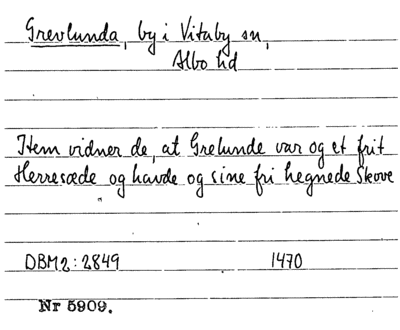 Grevlunda, by i Vitaby sn,
Albo hd
Item vidner de, at Grelunde var og et frit
Herresæde og havde og sine fri hegnede Skove
DBM2:2849 1470
Nr 5909.